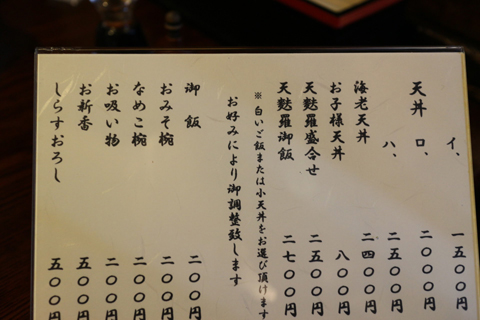 イ、 一五〇〇円
天丼 ロ、 二〇〇〇円
ハ、 二五〇〇円
海老天丼 二四〇〇円
お子様天丼 八〇〇円
天麩羅盛合せ 二五〇〇円
天麩羅御飯 二七〇〇円
※ 白いご飯または小天丼をお選び頂けます
お好みにより御調整致します
御飯 二〇〇円
おみそ椀 二〇〇円
なめこ椀 二〇〇円
お吸い物 二〇〇円
お新香 五〇〇円
しらすおろし 五〇〇円